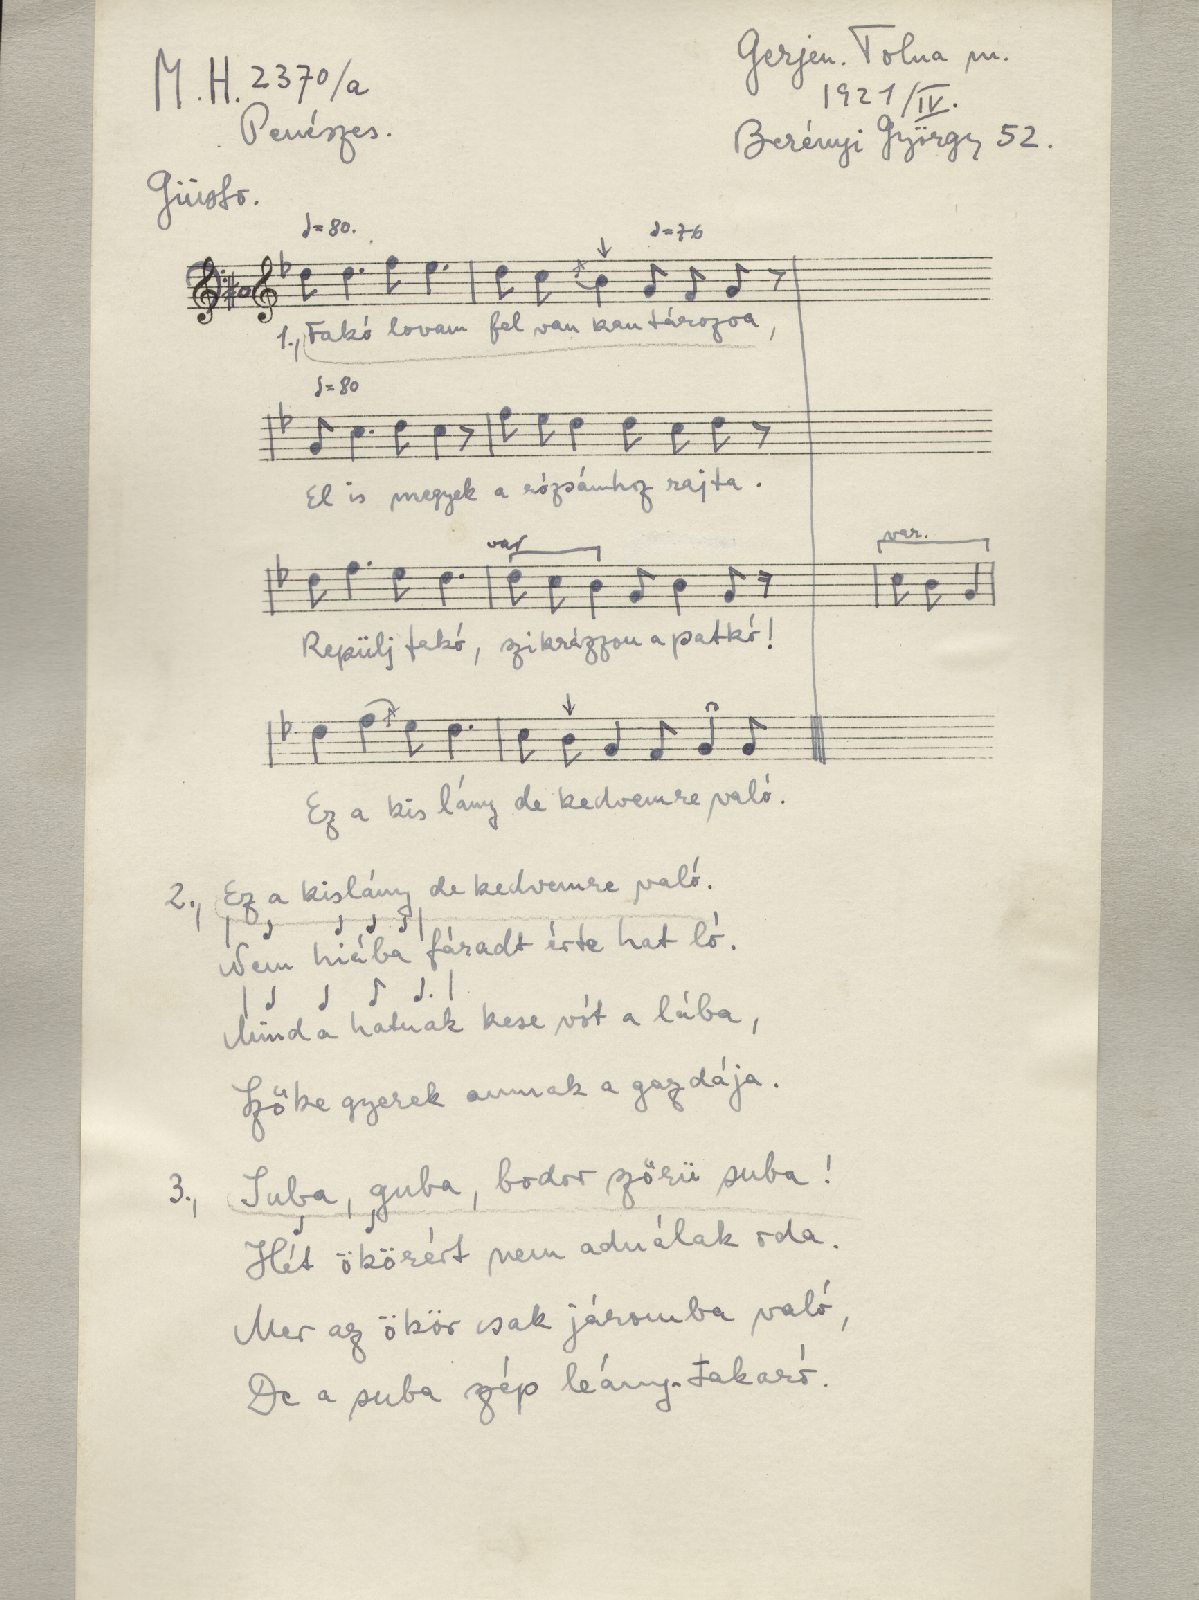 M.H. 2370/a
Penészes.
Gerjen. Tolna m.
1921/IV.
Berényi György 52.
Giusto.
♩=80.
♩=76
1., Fakó lovam fel van kantározva,
♩=80
El is megyek a rózsámhoz rajta.
var.
var.
Repülj fakó, szikrázzon a patkó!
Ez a kis lány de kedvemre való.
2., Ez a kislány de kedvemre való.
Nem hiába fáradt érte hat ló.
Mind a hatnak kese vót a lába,
Szőke gyerek annak a gazdája.
3., Suba, guba, bodor szőrü suba!
Hét ökörért nem adnálak oda.
Mer az ökör csak járomba való,
De a suba szép leány-takaró.